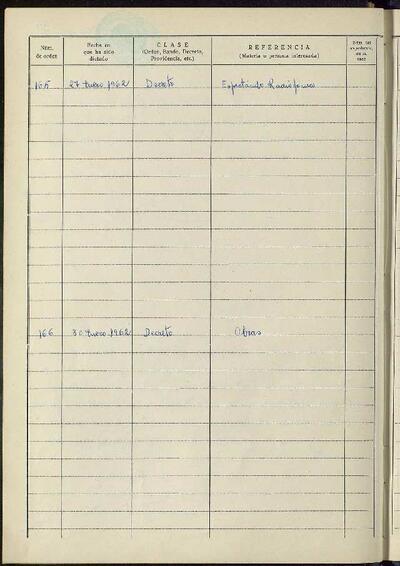 Núm. de orden
Fecha en que ha sido dictado
CLASE
(Orden, Bando, Decreto, Providencia, etc.)
REFERENCIA
(Materia o persona interesada)
165 27 Enero 1962 Decreto Espectáculo
166 30 Enero 1962 Decreto Obras